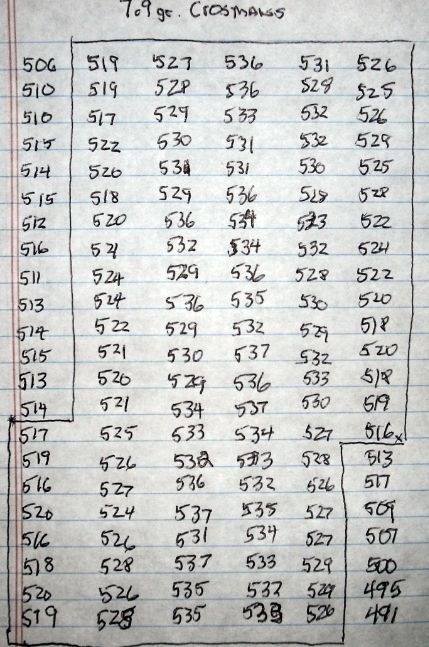 7.9 gr. Crosmans
506 519 527 536 531 526
510 519 528 536 528 525
510 517 529 533 532 526
515 522 530 531 532 529
514 520 531 531 530 525
515 518 529 536 528 528
512 520 536 534 533 522
516 521 532 534 532 524
511 524 529 536 528 522
513 524 536 535 530 520
514 522 529 532 529 518
515 521 530 537 532 520
513 520 529 536 533 518
514 521 534 537 530 519
517 525 533 534 527 516x
519 526 532 533 528 513
516 527 536 532 526 517
520 524 537 535 527 509
516 526 531 534 527 507
518 528 537 533 529 500
520 526 535 532 529 495
519 528 535 533 526 491